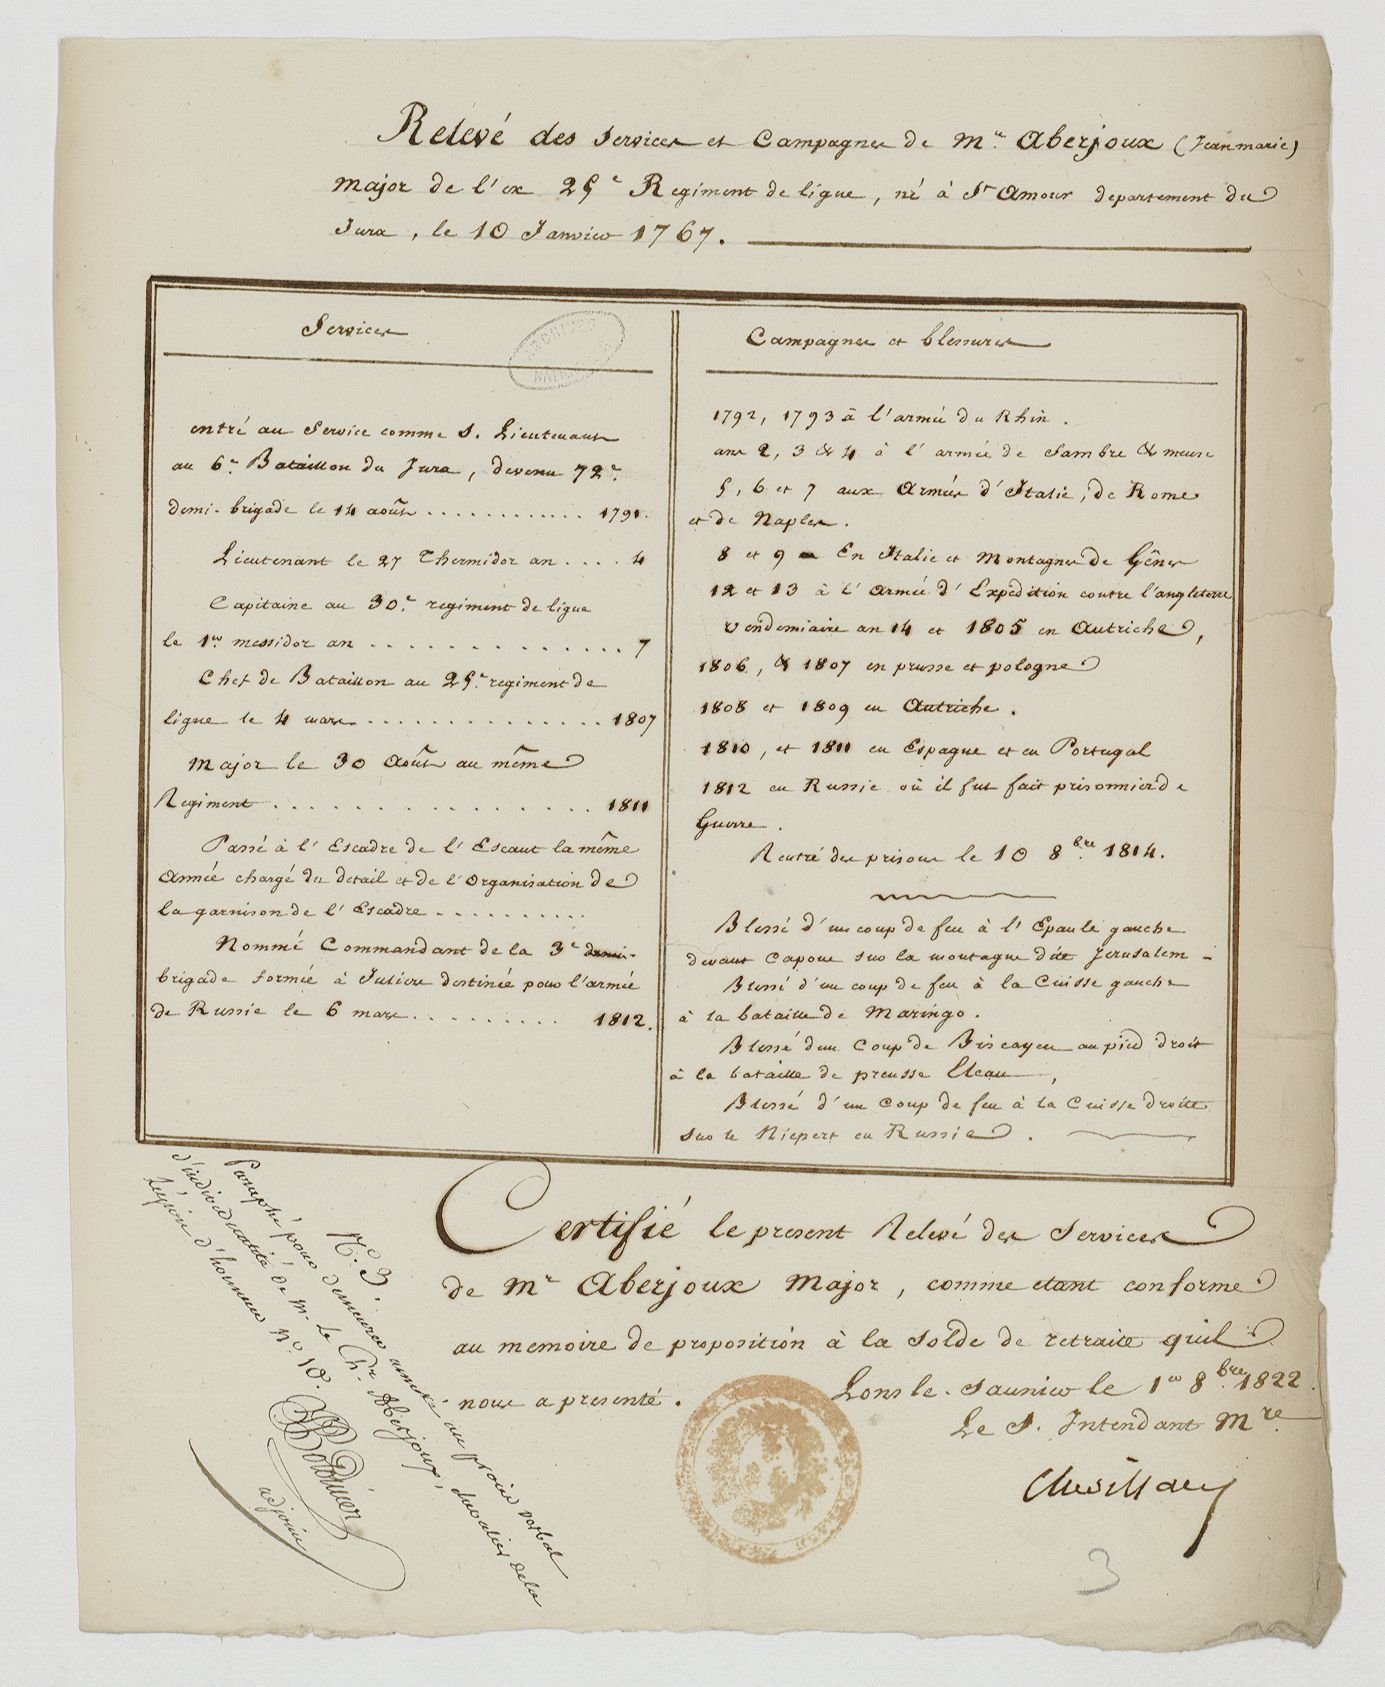 Relevé des services et Campagnes de Mr. Aberjoux (Jean marie)
Major de l'ex 25e Regiment de ligue, né à St Amour departement du
Jura, le 10 Janvier 1767.
Services
ARCHIVES
entré au Service comme S. Lieutenant
au 6e. Bataillon du Jura, devenu 72e.
demi-brigade le 14 août ............ 1791.
Lieutenant le 27 Thermidor an .... 4
Capitaine au 30e. regiment de ligue
le 1er messidor an .............. 7
Chef de Bataillon au 25e. regiment de
ligue le 4 mars .............. 1807
Major le 30 Août au même
Regiment ................ 1811
Passé à l'Escadre de l'Escaut la même
Année chargé du detail et de l'Organisation de
la garnison de l'Escadre ..........
Nommé Commandant de la 3e demi-
brigade formée à Juliers destinée pour l'armée
de Russie le 6 mars .......... 1812.
Campagnes et blessures
1792, 1793 à l'armée du Rhin.
ans 2, 3 & 4 à l'armée de Sambre & meuse
5, 6 et 7 aux Armées d'Italie, de Rome
et de Naples.
8 et 9 En Italie et Montagnes de Gênes
12 et 13 à l'Armée d'Expédition contre l'angleterre
Vendemiaire an 14 et 1805 en Autriche,
1806, & 1807 en prusse et pologne
1808 et 1809 en Autriche.
1810, et 1811 en Espagne et en Portugal
1812 en Russie où il fut fait prisonnier de
Guerre.
Rentré des prisons le 10 8bre. 1814.
Blessé d'un coup de feu à l'Epaule gauche
devant Capoue sur la montagne dite Jerusalem -
Blessé d'un coup de feu à la Cuisse gauche
à la bataille de Maringo.
Blessé d'un Coup de Biscayen au pied droit
à la bataille de preusse Eleau,
Blessé d'un coup de feu à la Cuisse droite
sur le Niepert en Russie.
Certifié le present Relevé des Services
de Mr Aberjoux Major, comme etant conforme
au memoire de proposition à la Solde de retraite quil
nous a presenté.
Lons le-Saunier le 1er 8bre. 1822.
Le S. Intendant Mre
No. 3.
Paraphé pour demeurer annexé au procès verbal
d'individualité de Mr. Le Chr. Aberjoux, chevalier de la
Légion d'honneur No. 18.
adjoint
3